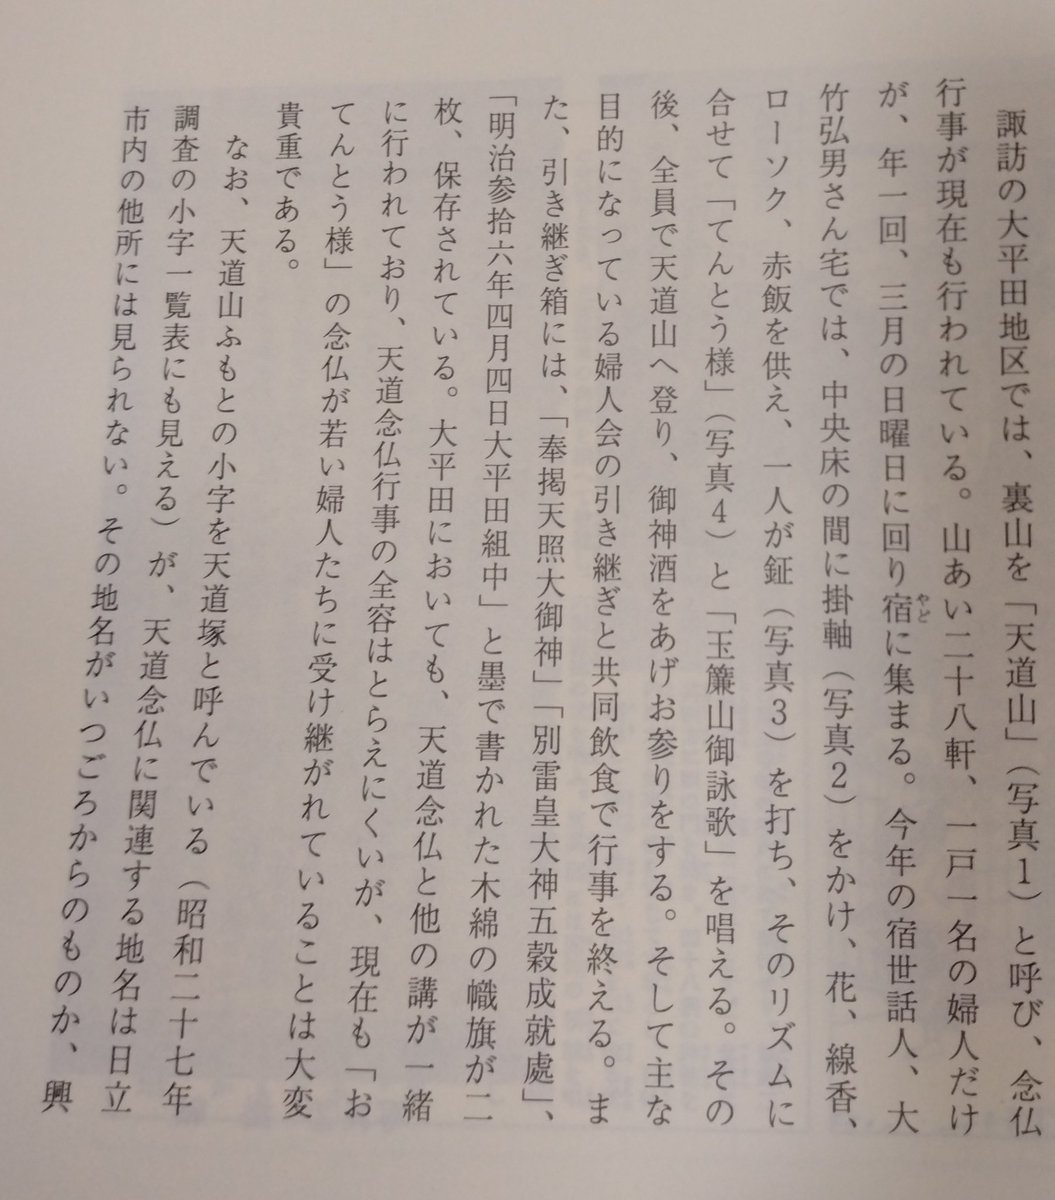 諏訪の大平田地区では、裏山を「天道山」（写真1）と呼び、念仏
行事が現在も行われている。山あい二十八軒、一戸一名の婦人だけ
が、年一回、三月の日曜日に回り宿に集まる。今年の宿世話人、大
やど
竹弘男さん宅では、中央床の間に掛軸（写真2）をかけ、花、線香、
ローソク、赤飯を供え、一人が鉦（写真3）を打ち、そのリズムに
合せて「てんとう様」（写真4）と「玉簾山御詠歌」を唱える。その
後、全員で天道山へ登り、御神酒をあげお参りをする。そして主な
目的になっている婦人会の引き継ぎと共同飲食で行事を終える。ま
た、引き継ぎ箱には、「奉掲天照大御神」「別雷皇大神五穀成就處」、
「明治参拾六年四月四日大平田組中」と墨で書かれた木綿の幟旗が二
枚、保存されている。大平田においても、天道念仏と他の講が一緒
に行われており、天道念仏行事の全容はとらえにくいが、現在も「お
てんとう様」の念仏が若い婦人たちに受け継がれていることは大変
貴重である。
なお、天道山ふもとの小字を天道塚と呼んでいる（昭和二十七年
調査の小字一覧表にも見える）が、天道念仏に関連する地名は日立
市内の他所には見られない。その地名がいつごろからのものか、興